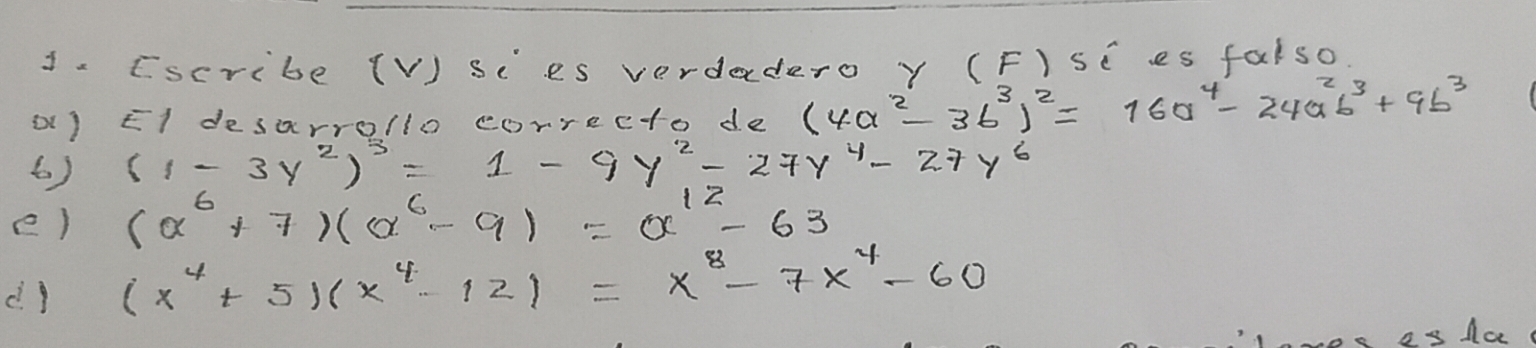 1. Escribe (V) si es verdadero y (F) si es falso.
a) El desarrollo correcto de (4a² - 3b³)² = 16a⁴ - 24a²b³ + 9b³
b) (1 - 3y²)³ = 1 - 9y² - 27y⁴ - 27y⁶
c) (a⁶ + 7)(a⁶ - 9) = a¹² - 63
d) (x⁴ + 5)(x⁴ - 12) = x⁸ - 7x⁴ - 60
es la